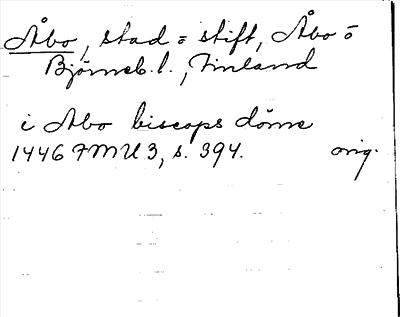 Åbo, stad = stift, Åbo o
Björneb. l., Finland
i Abo biscops döme
1446 FMU 3, s. 394. orig.